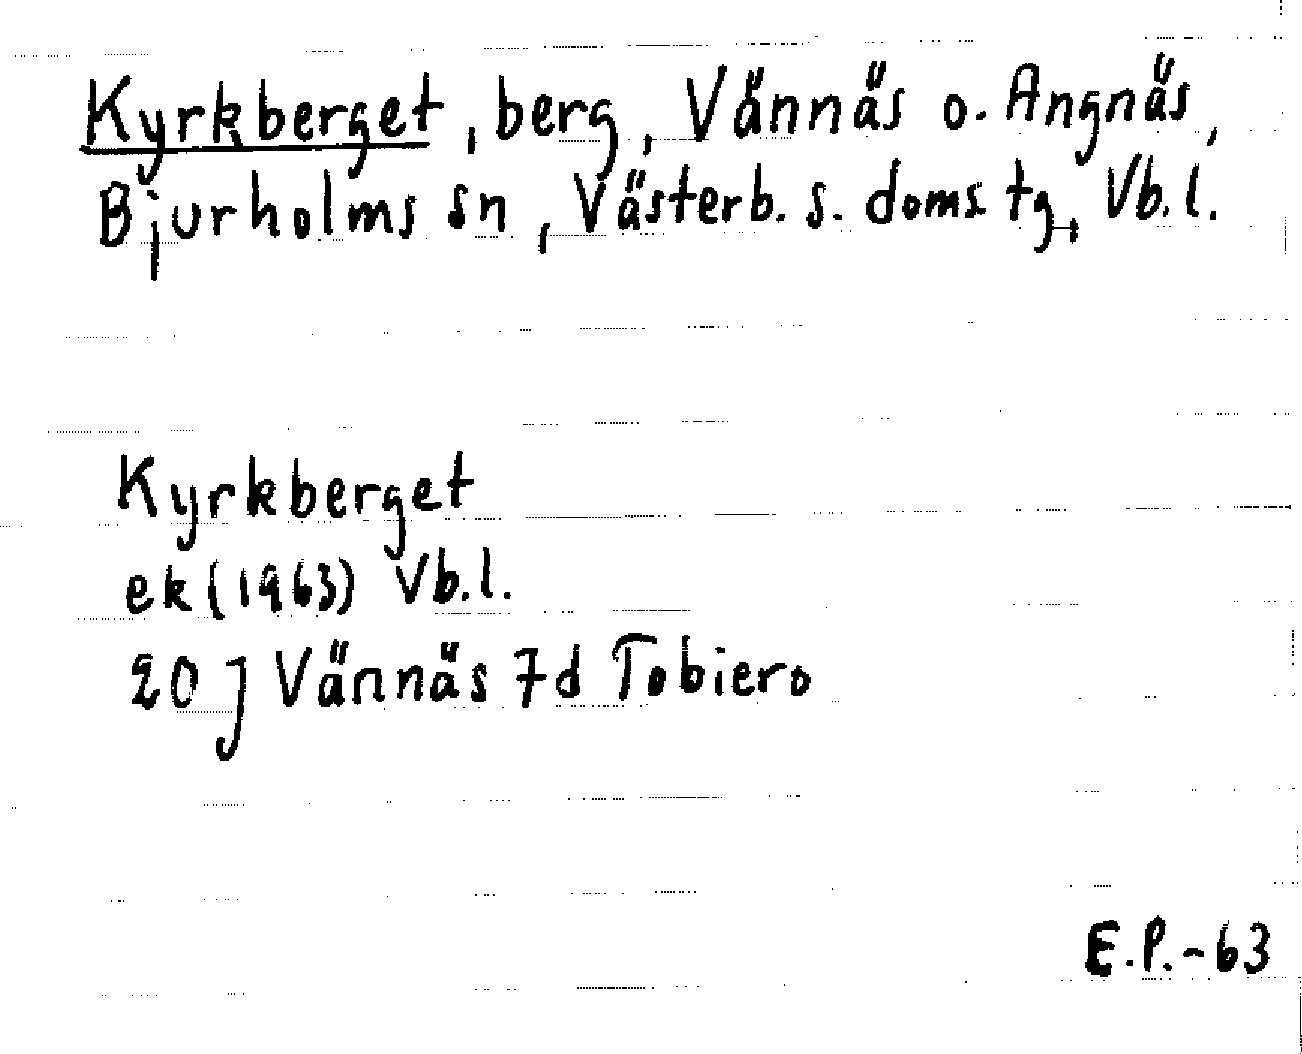 Kyrkberget, berg, Vännäs o. Angnäs,
Bjurholms sn, Västerb. s. doms tg, Vb. l.
Kyrkberget
ek (1963) Vb. l.
20 J Vännäs 7d Tobiero
E.P.-63